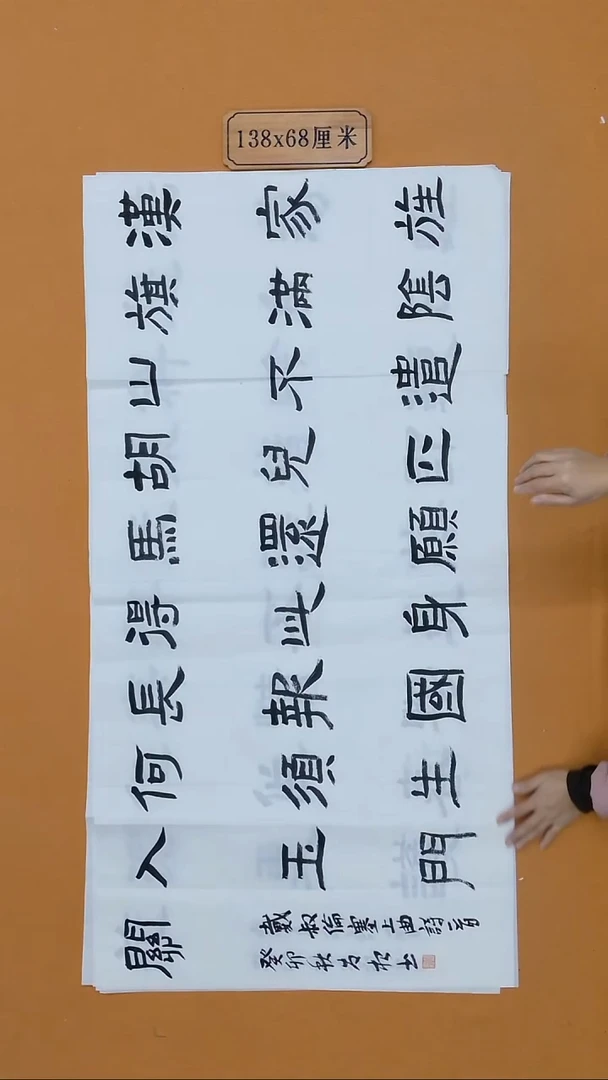 138x68厘米
漢家旌
旗滿陰
山不遣
胡兒匹
馬還願
得此身
長報國
何須生
入玉門
關
戴叔倫塞上曲詩二首
癸卯秋